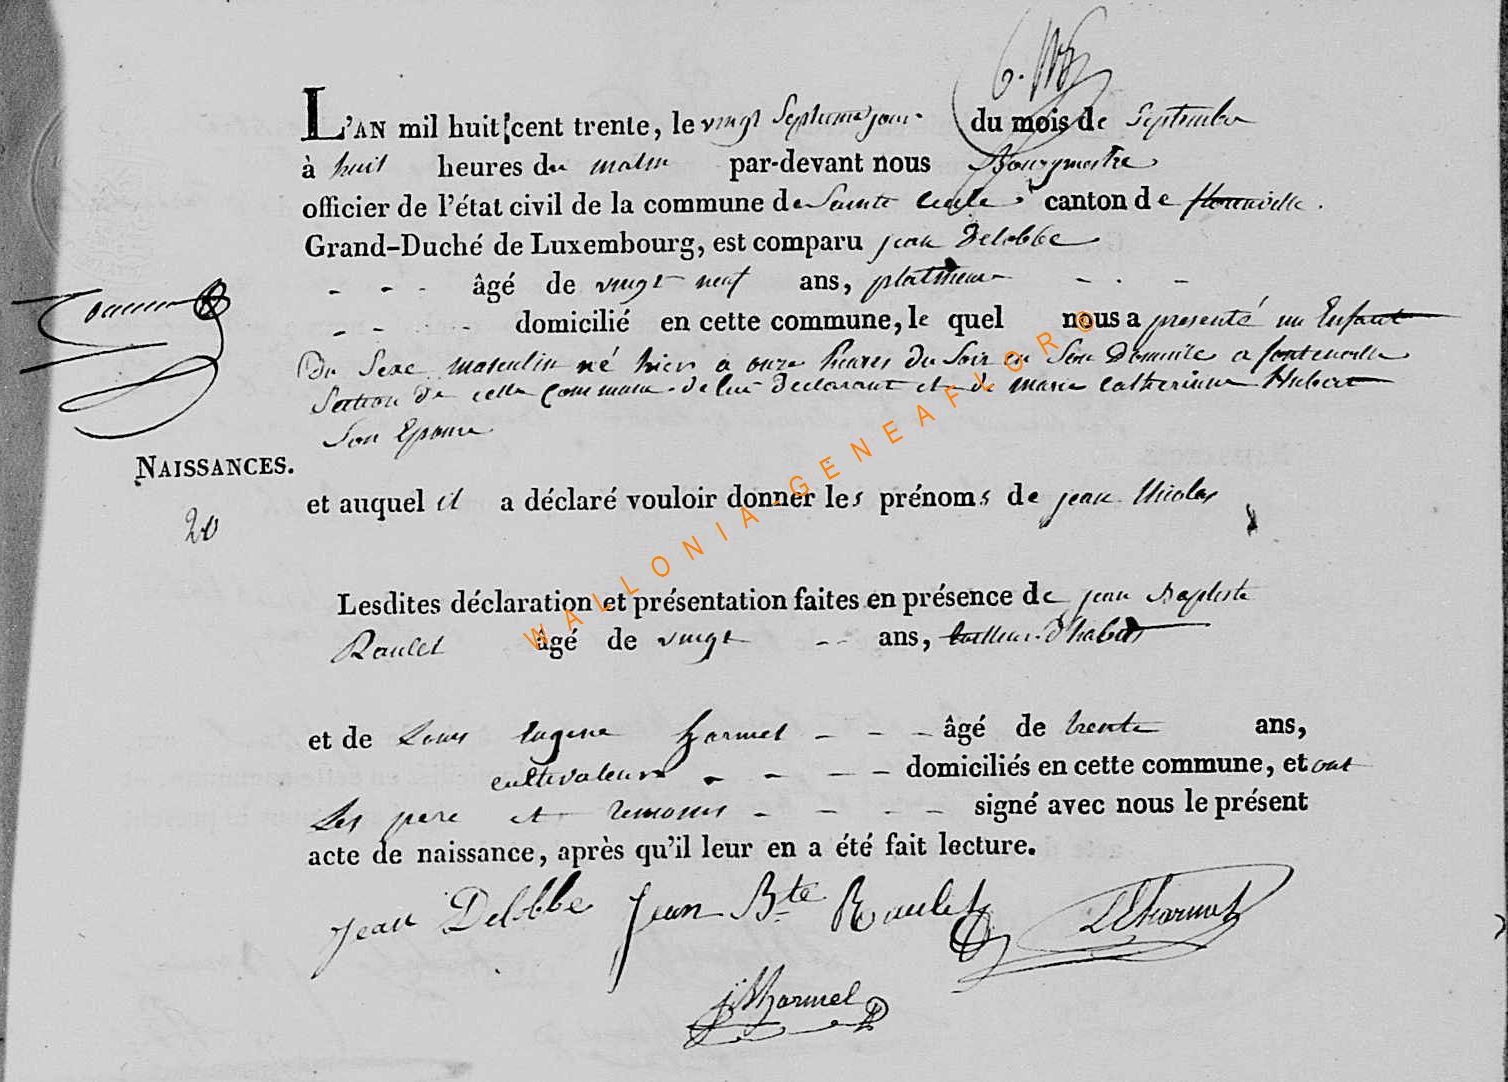 L'AN mil huit cent trente, le vingt Septieme jour du mois de Septembre
à huit heures du matin par-devant nous Bourgmestre
officier de l'état civil de la commune de Sainte Cecile canton de florenville.
Grand-Duché de Luxembourg, est comparu jean Delobbe
- - - âgé de vingt neuf ans, platineur - - -
- - - domicilié en cette commune, le quel nous a presenté un Enfant
Du Sexe masculin né hier a onze heures du Soir en Son Domicile a fontenoille
Section de cette Commune. de lui Declarant et de marie catherinne Hubert
Son Epouse
NAISSANCES.
20
et auquel il a déclaré vouloir donner les prénoms de jean Nicolas
Lesdites déclaration et présentation faites en présence de jean Baptiste
Raulet âgé de vingt -- ans, tailleur d'habits
et de Louis Eugene harmel - - - âgé de trente ans,
cultivateurs - - - - domiciliés en cette commune, et ont
Les pere et temoins - - - - signé avec nous le présent
acte de naissance, après qu'il leur en a été fait lecture.
Jean Delobbe Jean Bte Raulet LEharmel
harmel
WALLONIA-GENEAFLORO